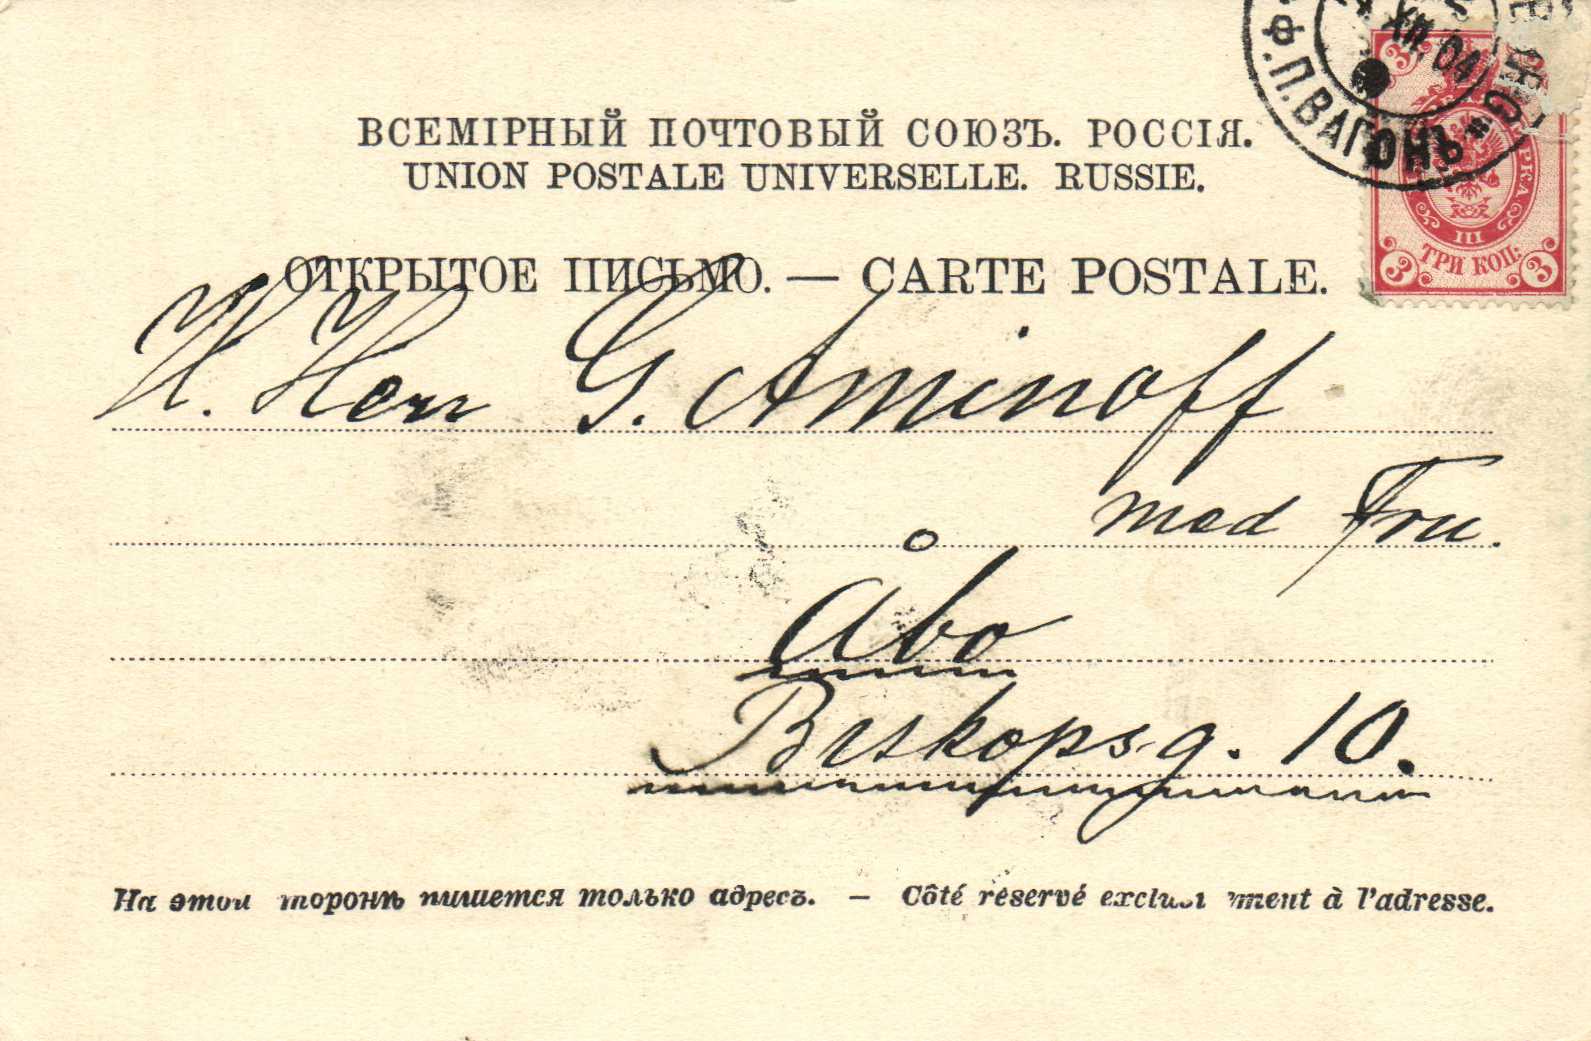 ВСЕМІРНЫЙ ПОЧТОВЫЙ СОЮЗЪ. РОССІЯ.
UNION POSTALE UNIVERSELLE. RUSSIE.
ОТКРЫТОЕ ПИСЬМО. — CARTE POSTALE.
H. Herr G. Aminoff
med Fru.
Åbo
Biskopsg. 10.
На этой торонѣ пишется только адресъ. — Côté réservé exclusi ment à l'adresse.
Ф.П.ВАГОНЪ
XII.04
3
РКА
III
ТРИ КОП:
3 3